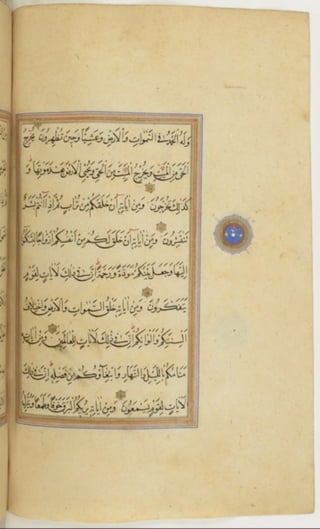 وَلَهُ الْحَمْدُ فِي السَّمٰوَاتِ وَالْأَرْضِ وَعَشِيًّا وَحِينَ تُظْهِرُونَ يُخْرِجُ
الْحَيَّ مِنَ الْمَيِّتِ وَيُخْرِجُ الْمَيِّتَ مِنَ الْحَيِّ وَيُحْيِي الْأَرْضَ بَعْدَ مَوْتِهَا وَ
كَذٰلِكَ تُخْرَجُونَ وَمِنْ آيَاتِهِ أَنْ خَلَقَكُمْ مِنْ تُرَابٍ ثُمَّ إِذَا أَنْتُمْ بَشَرٌ
تَنْتَشِرُونَ وَمِنْ آيَاتِهِ أَنْ خَلَقَ لَكُمْ مِنْ أَنْفُسِكُمْ أَزْوَاجًا لِتَسْكُنُوا
إِلَيْهَا وَجَعَلَ بَيْنَكُمْ مَوَدَّةً وَرَحْمَةً إِنَّ فِي ذٰلِكَ لَآيَاتٍ لِقَوْمٍ
يَتَفَكَّرُونَ وَمِنْ آيَاتِهِ خَلْقُ السَّمٰوَاتِ وَالْأَرْضِ وَاخْتِلَافُ
أَلْسِنَتِكُمْ وَأَلْوَانِكُمْ إِنَّ فِي ذٰلِكَ لَآيَاتٍ لِلْعَالِمِينَ وَمِنْ آيَاتِهِ
مَنَامُكُمْ بِاللَّيْلِ وَالنَّهَارِ وَابْتِغَاؤُكُمْ مِنْ فَضْلِهِ إِنَّ فِي ذٰلِكَ
لَآيَاتٍ لِقَوْمٍ يَسْمَعُونَ وَمِنْ آيَاتِهِ يُرِيكُمُ الْبَرْقَ خَوْفًا وَطَمَعًا وَيُنَزِّلُ